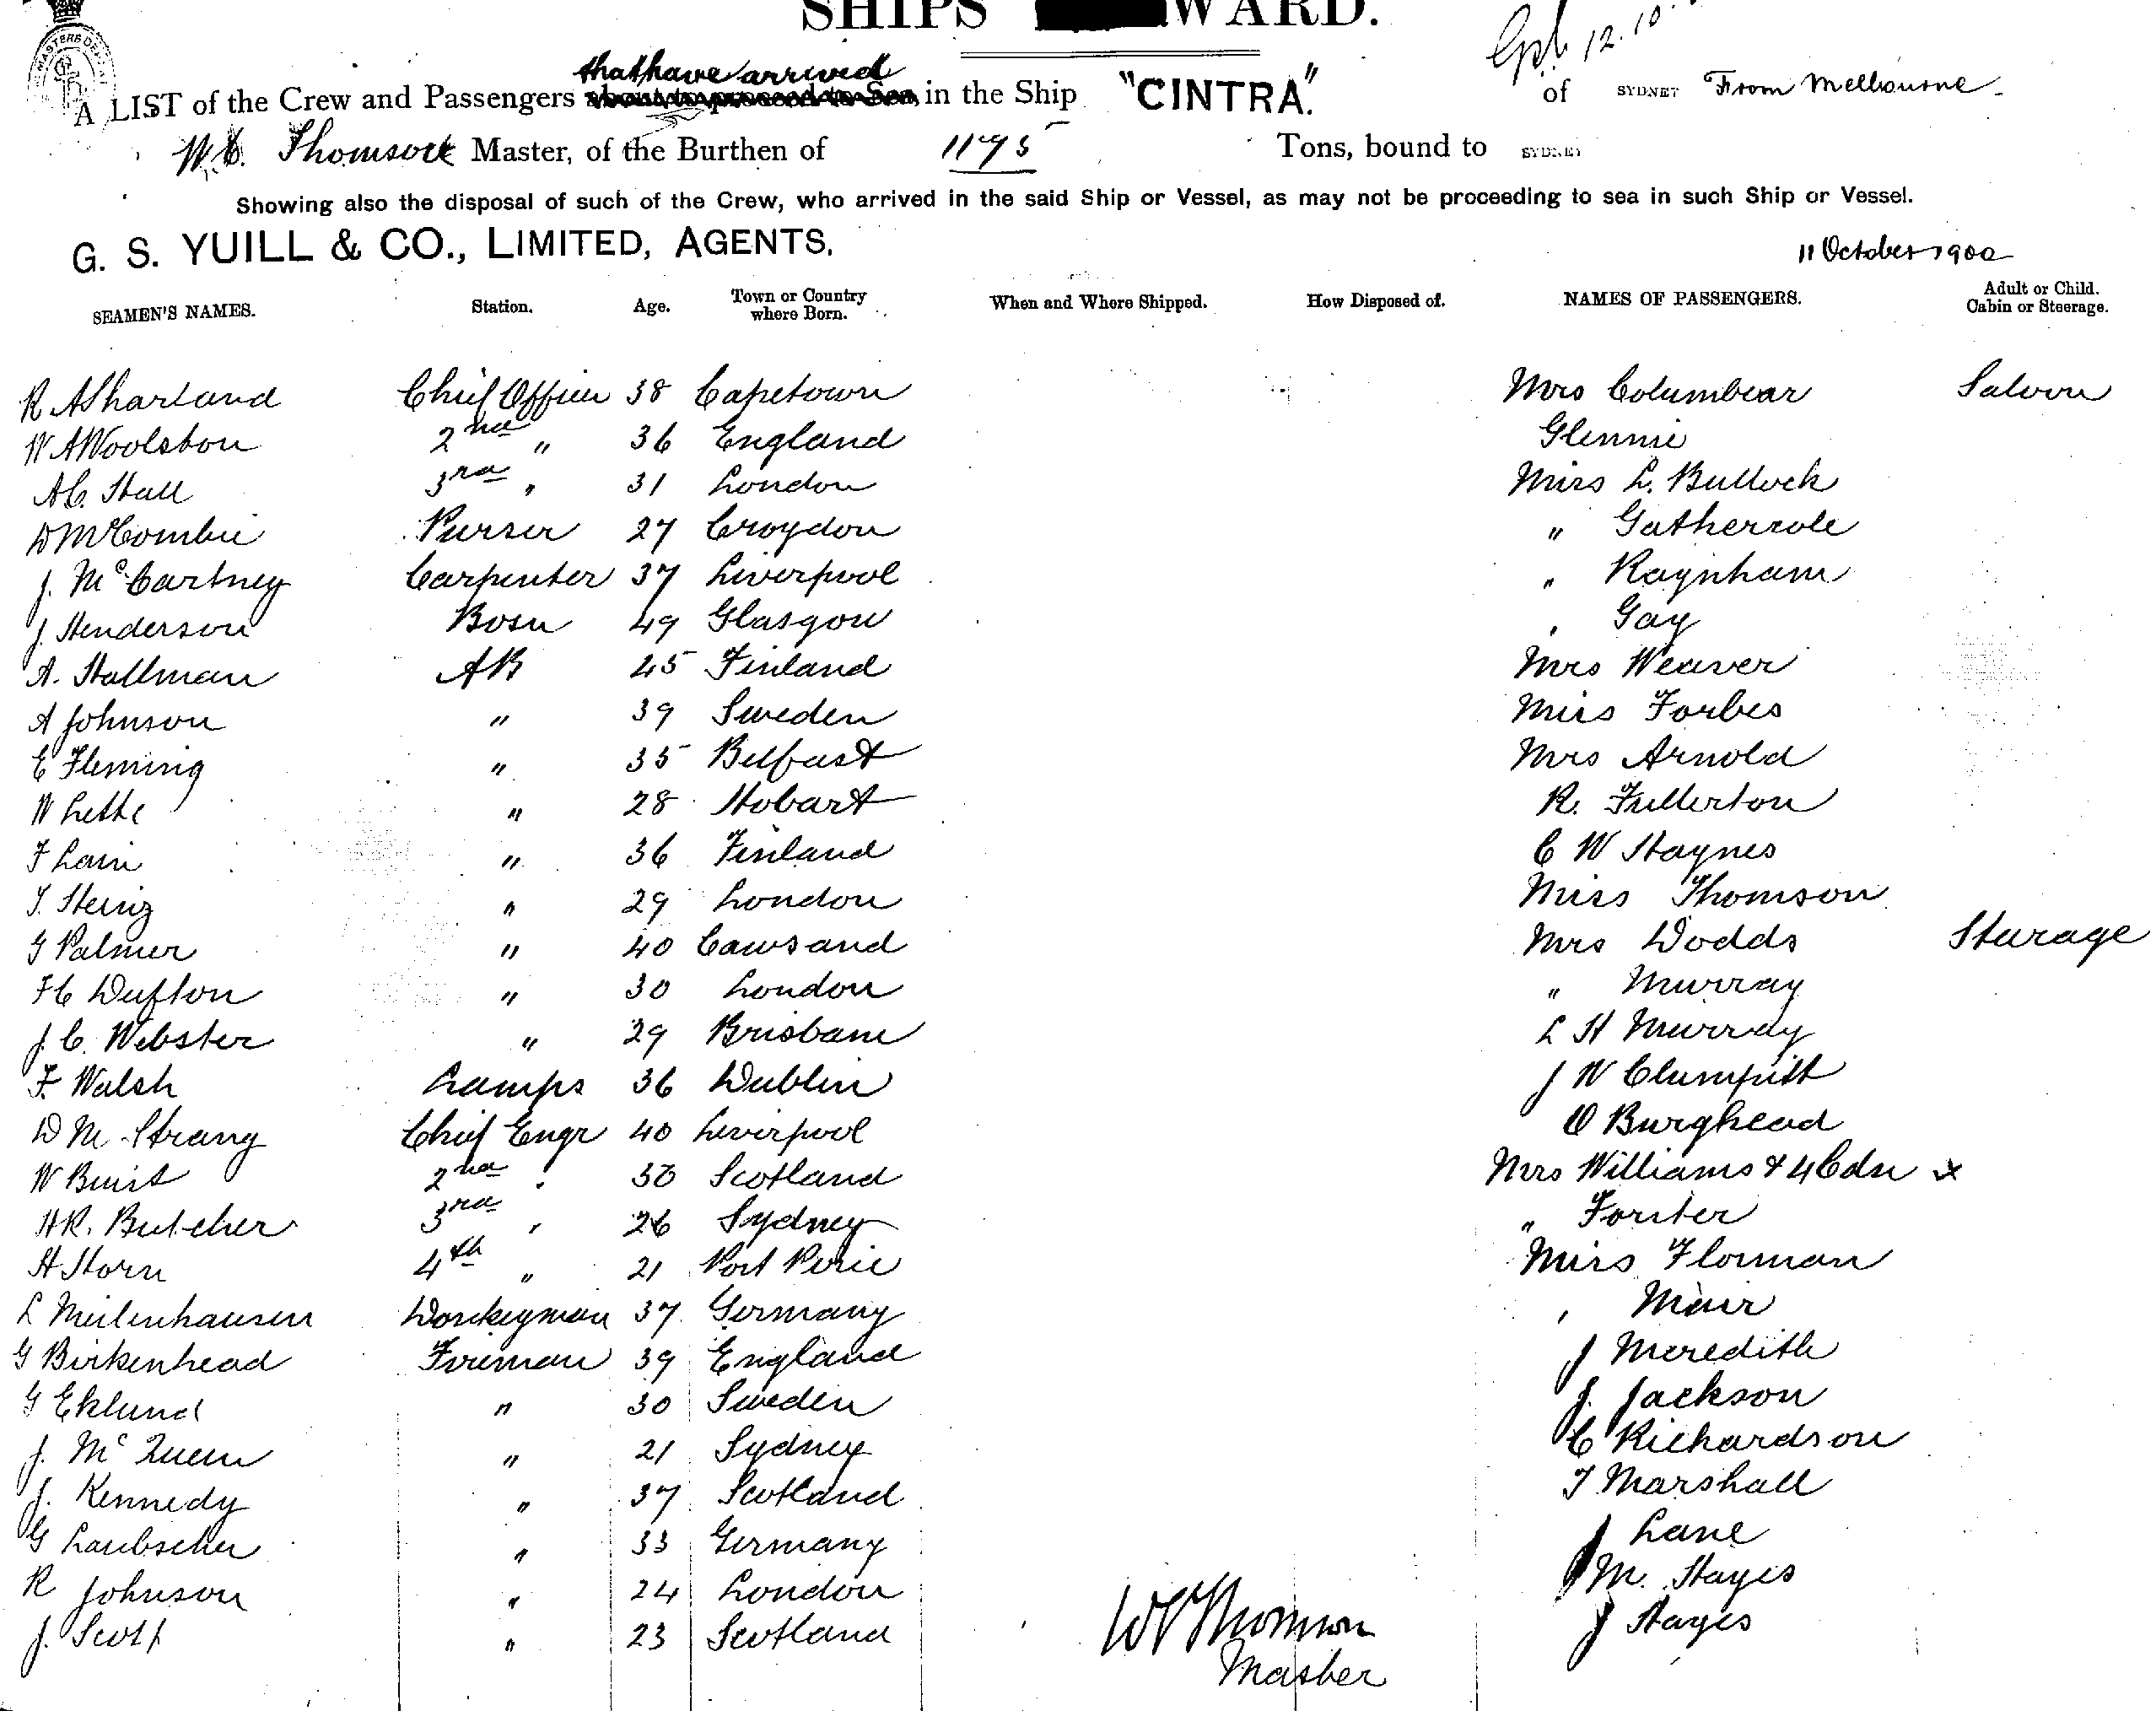 SHIPS WARD.
12.10.
that have arrived
A LIST of the Crew and Passengers about to proceed to Sea, in the Ship "CINTRA." of SYDNEY From Melbourne.
W.C. Thomson Master, of the Burthen of 1195 Tons, bound to SYDNEY
Showing also the disposal of such of the Crew, who arrived in the said Ship or Vessel, as may not be proceeding to sea in such Ship or Vessel.
G. S. YUILL & CO., LIMITED, AGENTS.
11 October 1900
SEAMEN'S NAMES. Station. Age. Town or Country where Born. When and Where Shipped. How Disposed of. NAMES OF PASSENGERS. Adult or Child. Cabin or Steerage.
R A Sharland Chief Officer 38 Capetown Mrs Columbear Saloon
W A Woolston 2nd " 36 England Glennie
A C. Hall 3rd " 31 London Miss L. Bullock
D McCombie Purser 27 Croydon " Gathercole
J. McCartney Carpenter 37 Liverpool " Raynham
J. Henderson Bosn 49 Glasgow " Gay
A. Hallman AB 45 Finland Mrs Weaver
A Johnson " 39 Sweden Miss Forbes
E Fleming " 35 Belfast Mrs Arnold
W " 28 Hobart R. Fullerton
F Lain " 36 Finland C W Haynes
J. Heinz " 29 London Miss Thomson
G Palmer " 40 Cawsand Mrs Dodds Steerage
F C Dufton " 30 London " Murray
J. C. Webster " 29 Brisbane L H Murray
F. Walsh Lamps 36 Dublin J W Clumpitt
D M. Strang Chief Engr 40 Liverpool O Burghead
W Buist 2nd " 30 Scotland Mrs Williams & 4 Cdn x
H R. Butcher 3rd " 26 Sydney " Forster
H Horn 4th " 21 Port Pirie Miss Florman
L Meilenhausen Donkeyman 37 Germany " Muir
G Birkenhead Fireman 39 England J Meredith
G Eklund " 30 Sweden J. Jackson
J. McQueen " 21 Sydney C Richardson
J. Kennedy " 37 Scotland T Marshall
G Laubscher " 33 Germany J Lane
R Johnson " 24 London M. Hayes
J. Scott " 23 Scotland J Hayes
W C Thomson
Master